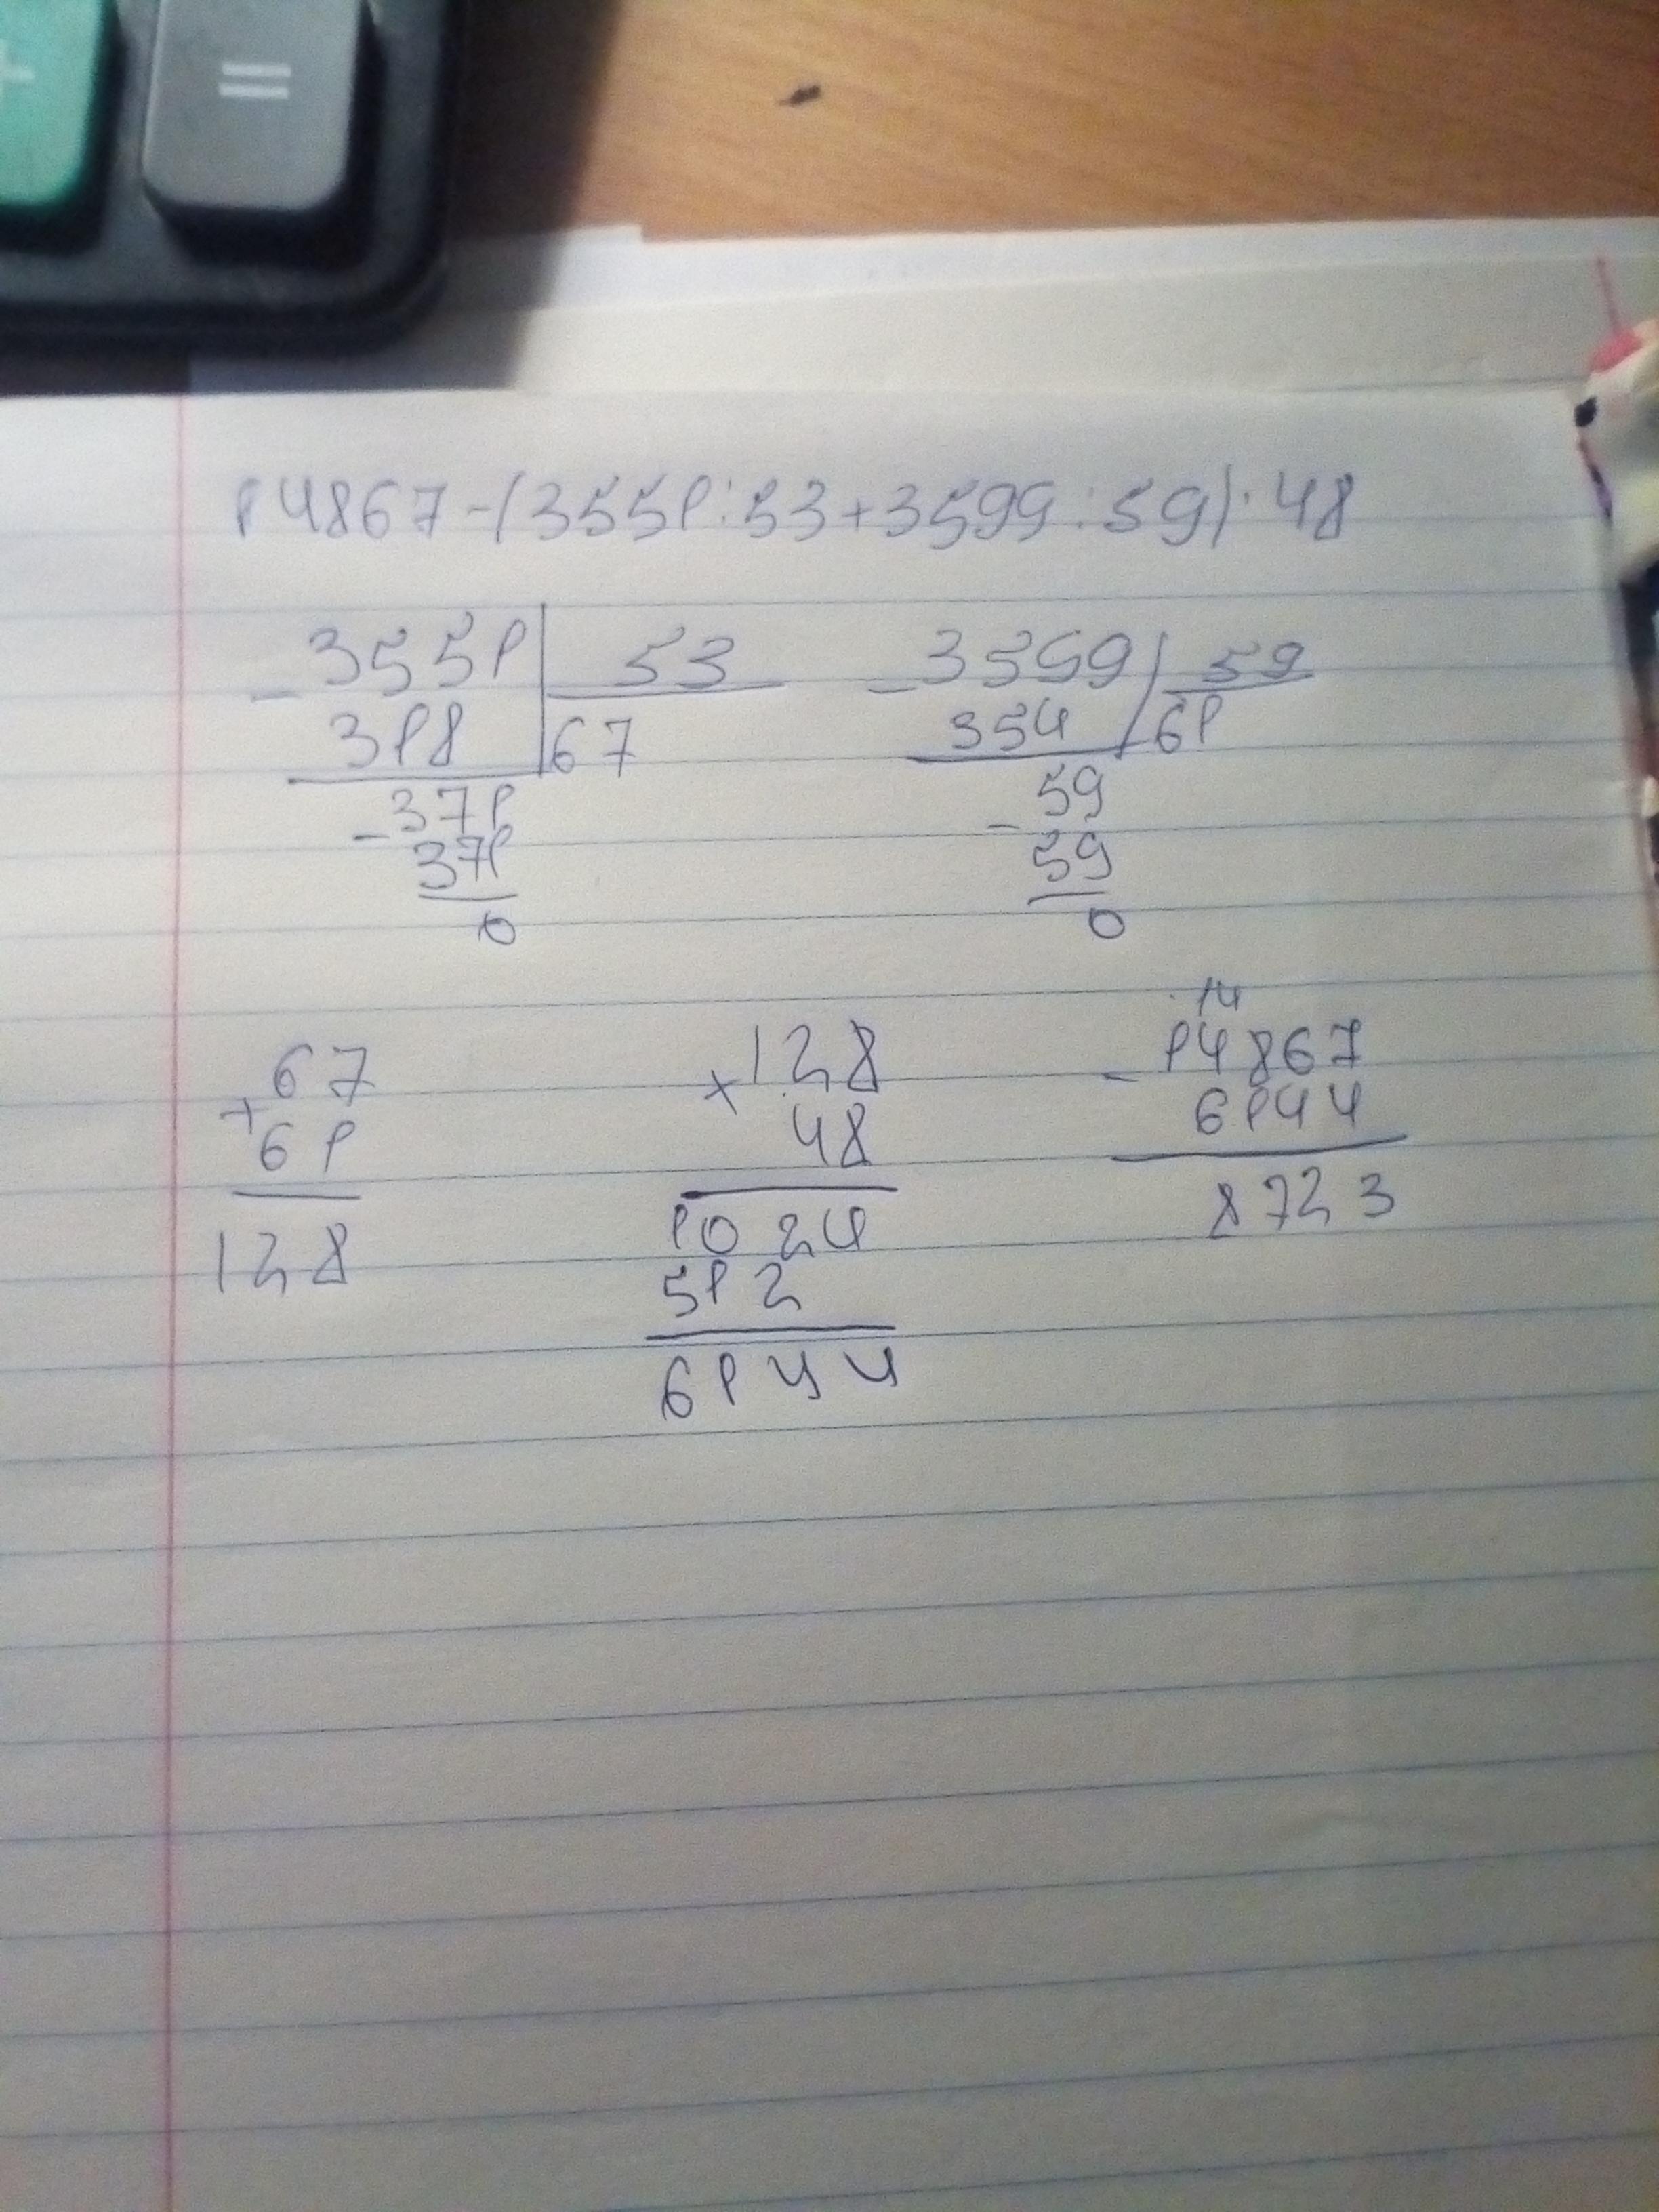 + =
14867-(3551:53+3599:59)·48
-3551|53 -3599|59
318 |67 354 |61
-371 59
371 -59
0 0
14
67 128 14867
+61 ×48 -6144
128 1024 8723
512
6144